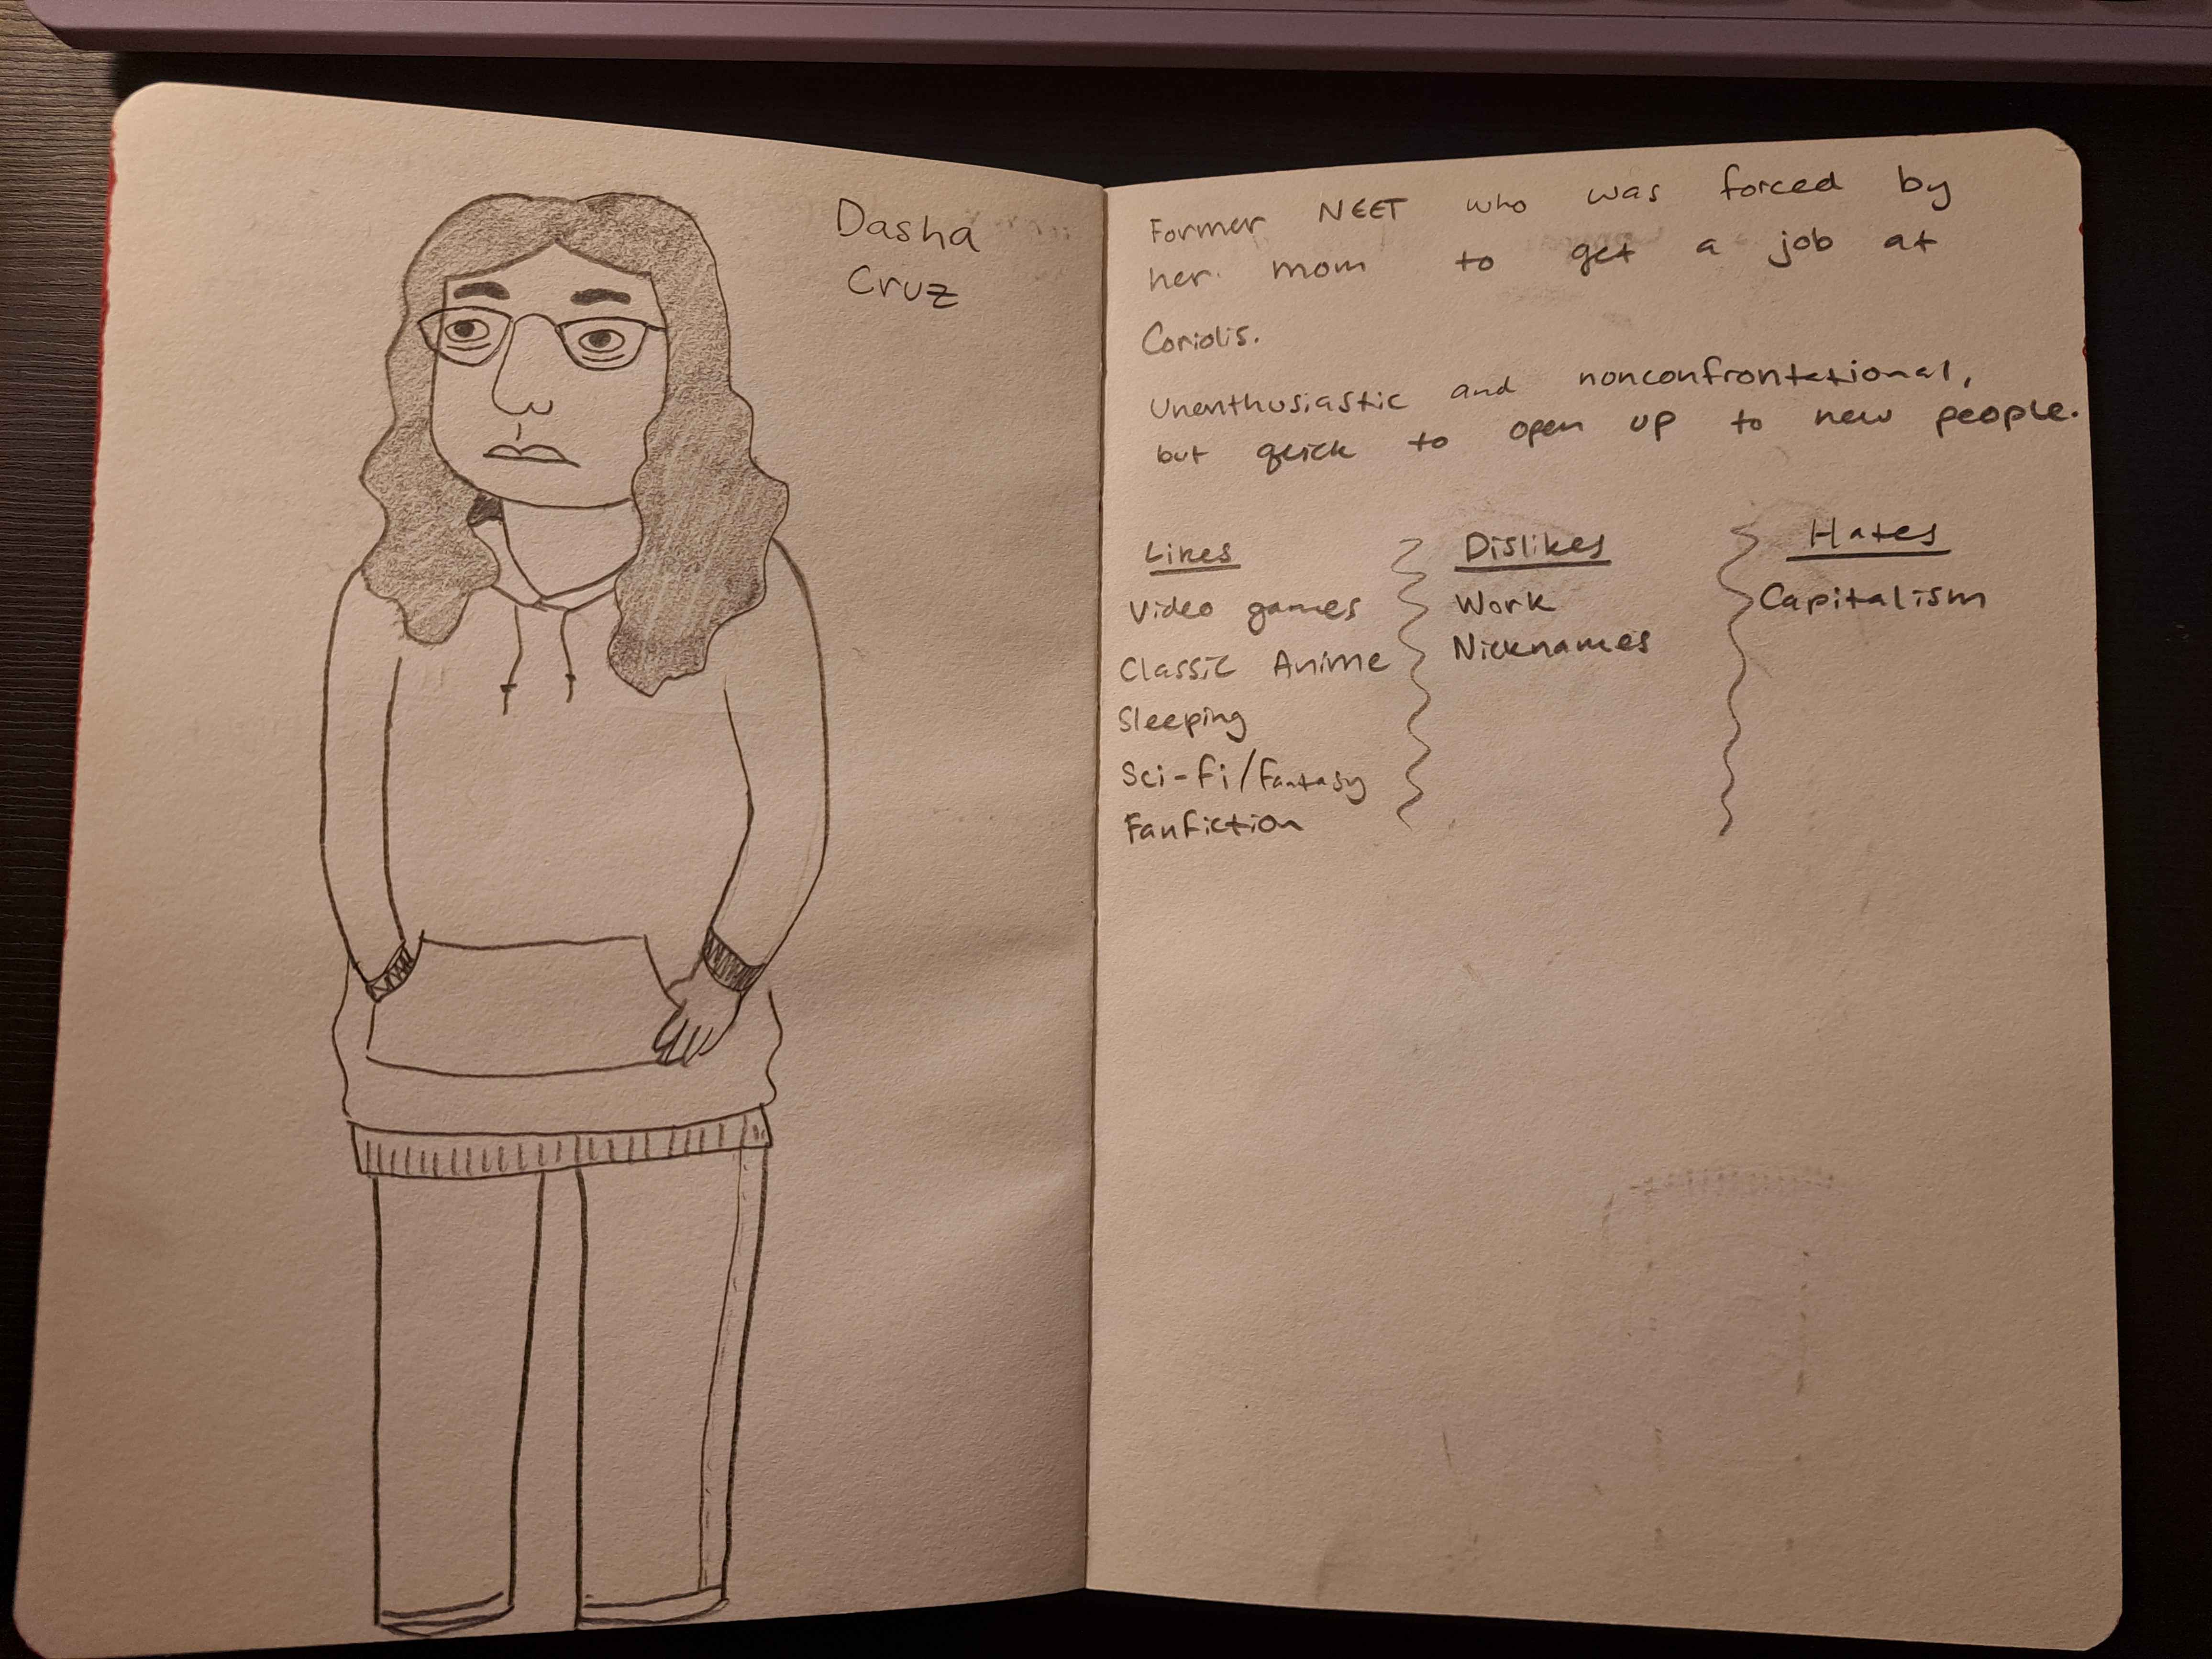 Dasha
Cruz
Former NEET who was forced by
her mom to get a job at
Coriolis.
Unenthusiastic and nonconfrontational,
but quick to open up to new people.
Likes
Video games
Classic Anime
Sleeping
Sci-fi/Fantasy
Fanfiction
Dislikes
Work
Nicknames
Hates
Capitalism